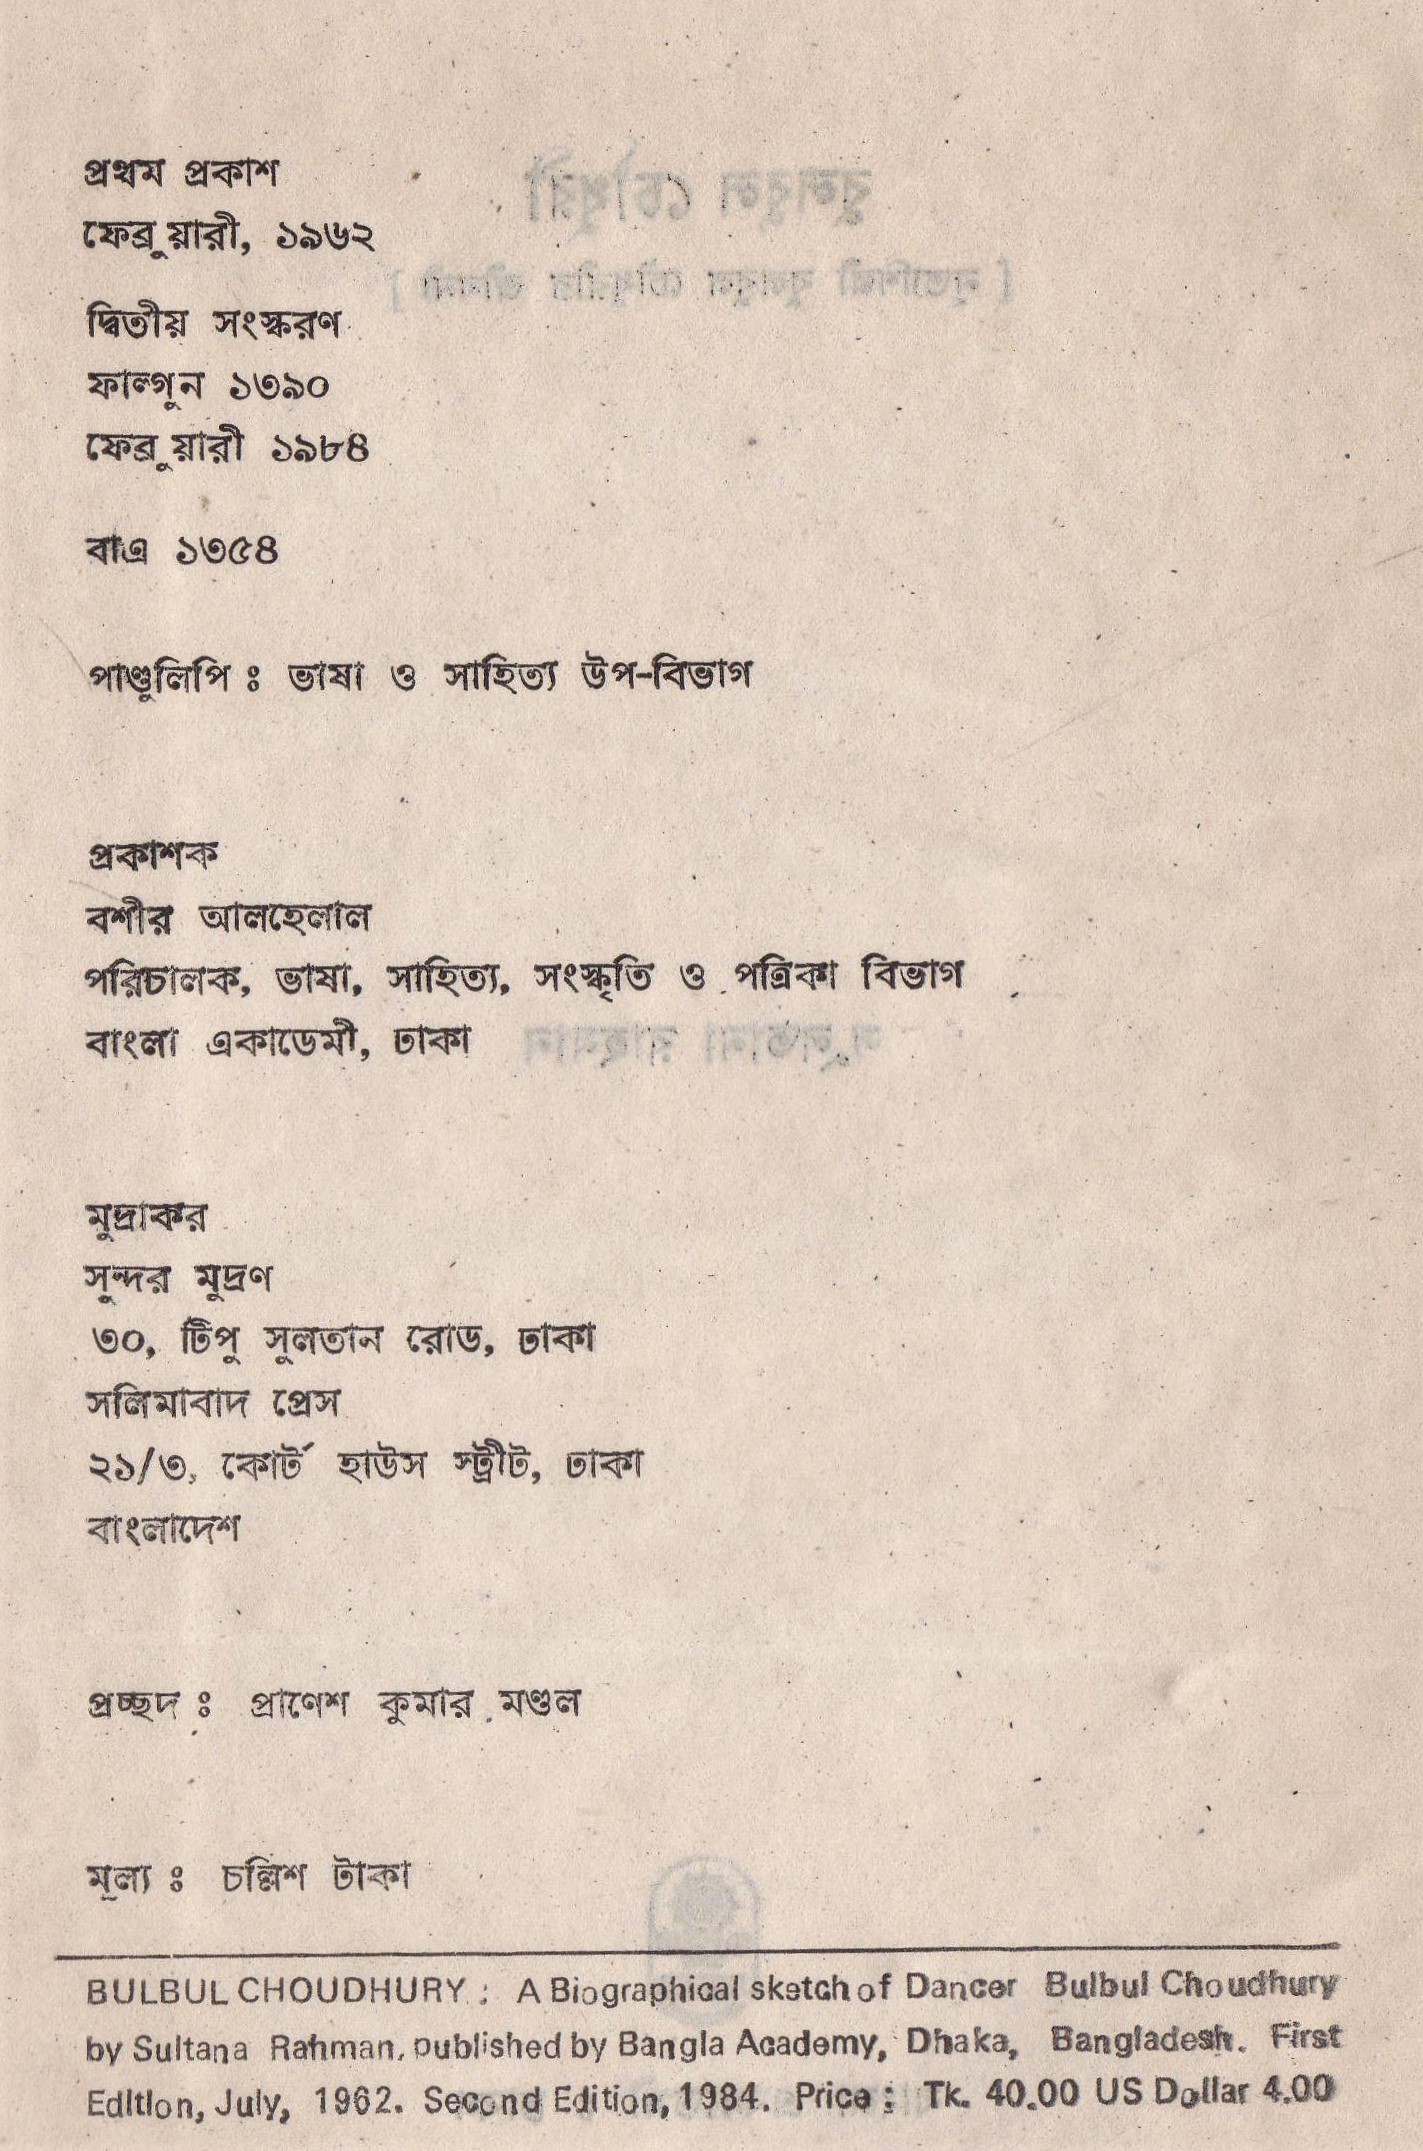 প্রথম প্রকাশ
ফেব্রুয়ারী, ১৯৬২
দ্বিতীয় সংস্করণ
ফাল্গুন ১৩৯০
ফেব্রুয়ারী ১৯৮৪
বাএ ১৩৫৪
পাণ্ডুলিপি ঃ ভাষা ও সাহিত্য উপ-বিভাগ
প্রকাশক
বশীর আলহেলাল
পরিচালক, ভাষা, সাহিত্য, সংস্কৃতি ও পত্রিকা বিভাগ
বাংলা একাডেমী, ঢাকা
মুদ্রাকর
সুন্দর মুদ্রণ
৩০, টিপু সুলতান রোড, ঢাকা
সলিমাবাদ প্রেস
২১/৩, কোর্ট হাউস স্ট্রীট, ঢাকা
বাংলাদেশ
প্রচ্ছদ ঃ প্রাণেশ কুমার মণ্ডল
মূল্য ঃ চল্লিশ টাকা
BULBUL CHOUDHURY : A Biographical sketch of Dancer Bulbul Choudhury
by Sultana Rahman, published by Bangla Academy, Dhaka, Bangladesh. First
Edition, July, 1962. Second Edition, 1984. Price : Tk. 40.00 US Dollar 4.00